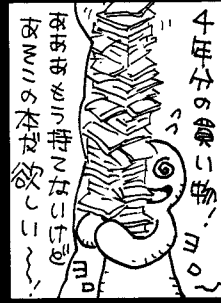 4年分の買い物！
ヨロ〜
ヨロ
あああもう持てないけど
あそこの本が欲しい〜〜！